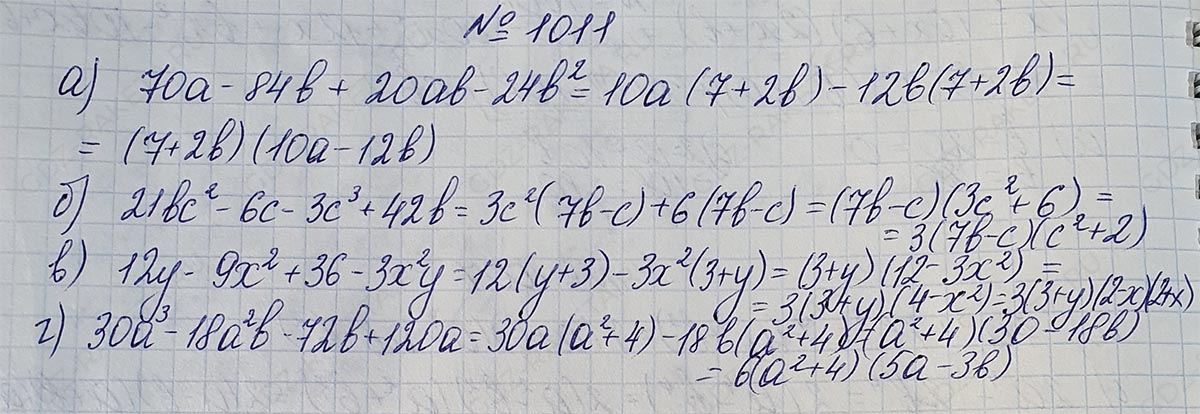 № 1011
а) 70a - 84b + 20ab - 24b² = 10a (7+2b) - 12b(7+2b) =
= (7+2b) (10a - 12b)
б) 21bc² - 6c - 3c³ + 42b = 3c² (7b-c) + 6 (7b-c) = (7b-c) (3c² + 6) =
= 3(7b-c) (c²+2)
в) 12y - 9x² + 36 - 3x²y = 12 (y+3) - 3x² (3+y) = (3+y) (12 - 3x²) =
= 3(3+y) (4-x²) = 3(3+y)(2-x)(2+x)
г) 30a³ - 18a²b - 72b + 120a = 30a (a²+4) - 18b(a²+4) = (a²+4) (30 - 18b)
= 6(a²+4) (5a - 3b)